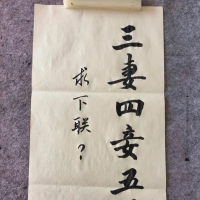 三妻四妾五
求下联?